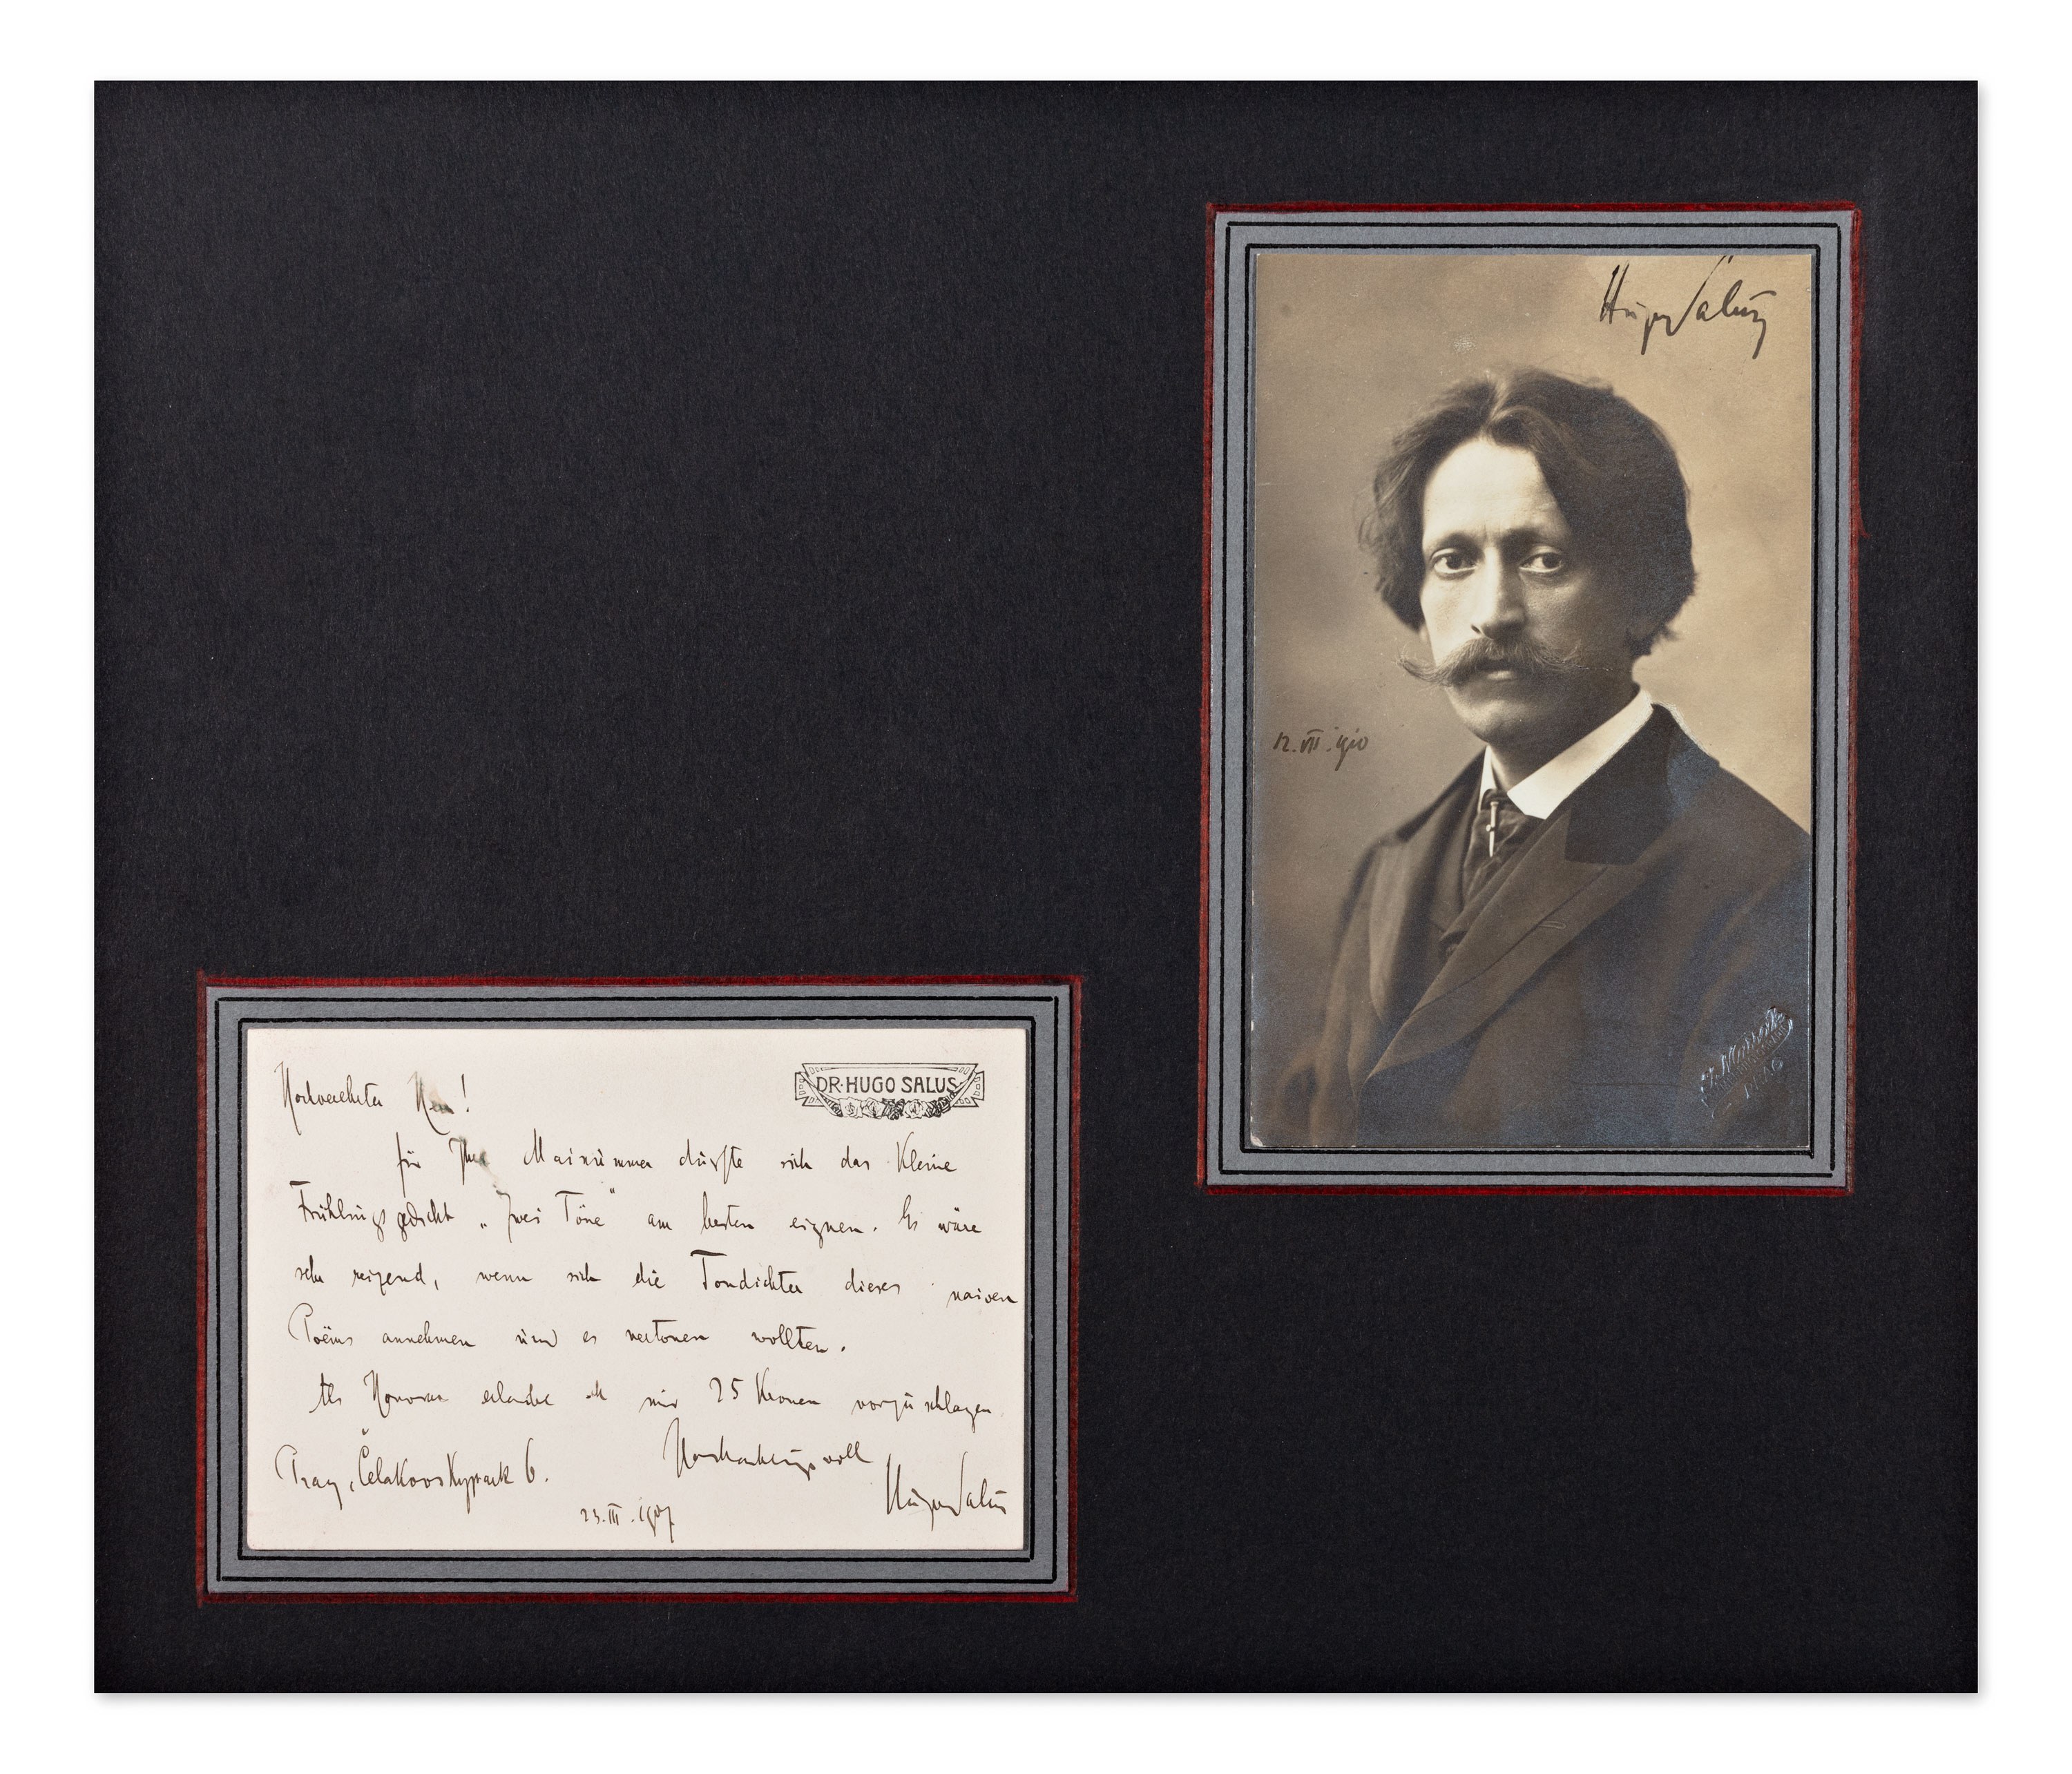 Hugo Salus
12.VII.1910
PRAG
DR. HUGO SALUS
Hochverehrter Herr!
für Ihre Mainummer dürfte sich das kleine
Frühlingsgedicht „Zwei Töne“ am besten eignen. Es wäre
sehr reizend, wenn sich die Tondichter dieses naiven
Poëms annehmen und es vertonen wollten.
Als Honorar erlaube ich mir 25 Kronen vorzuschlagen
Hochachtungsvoll
Prag, Čelakovskypark 6.
Hugo Salus
23.III.1907